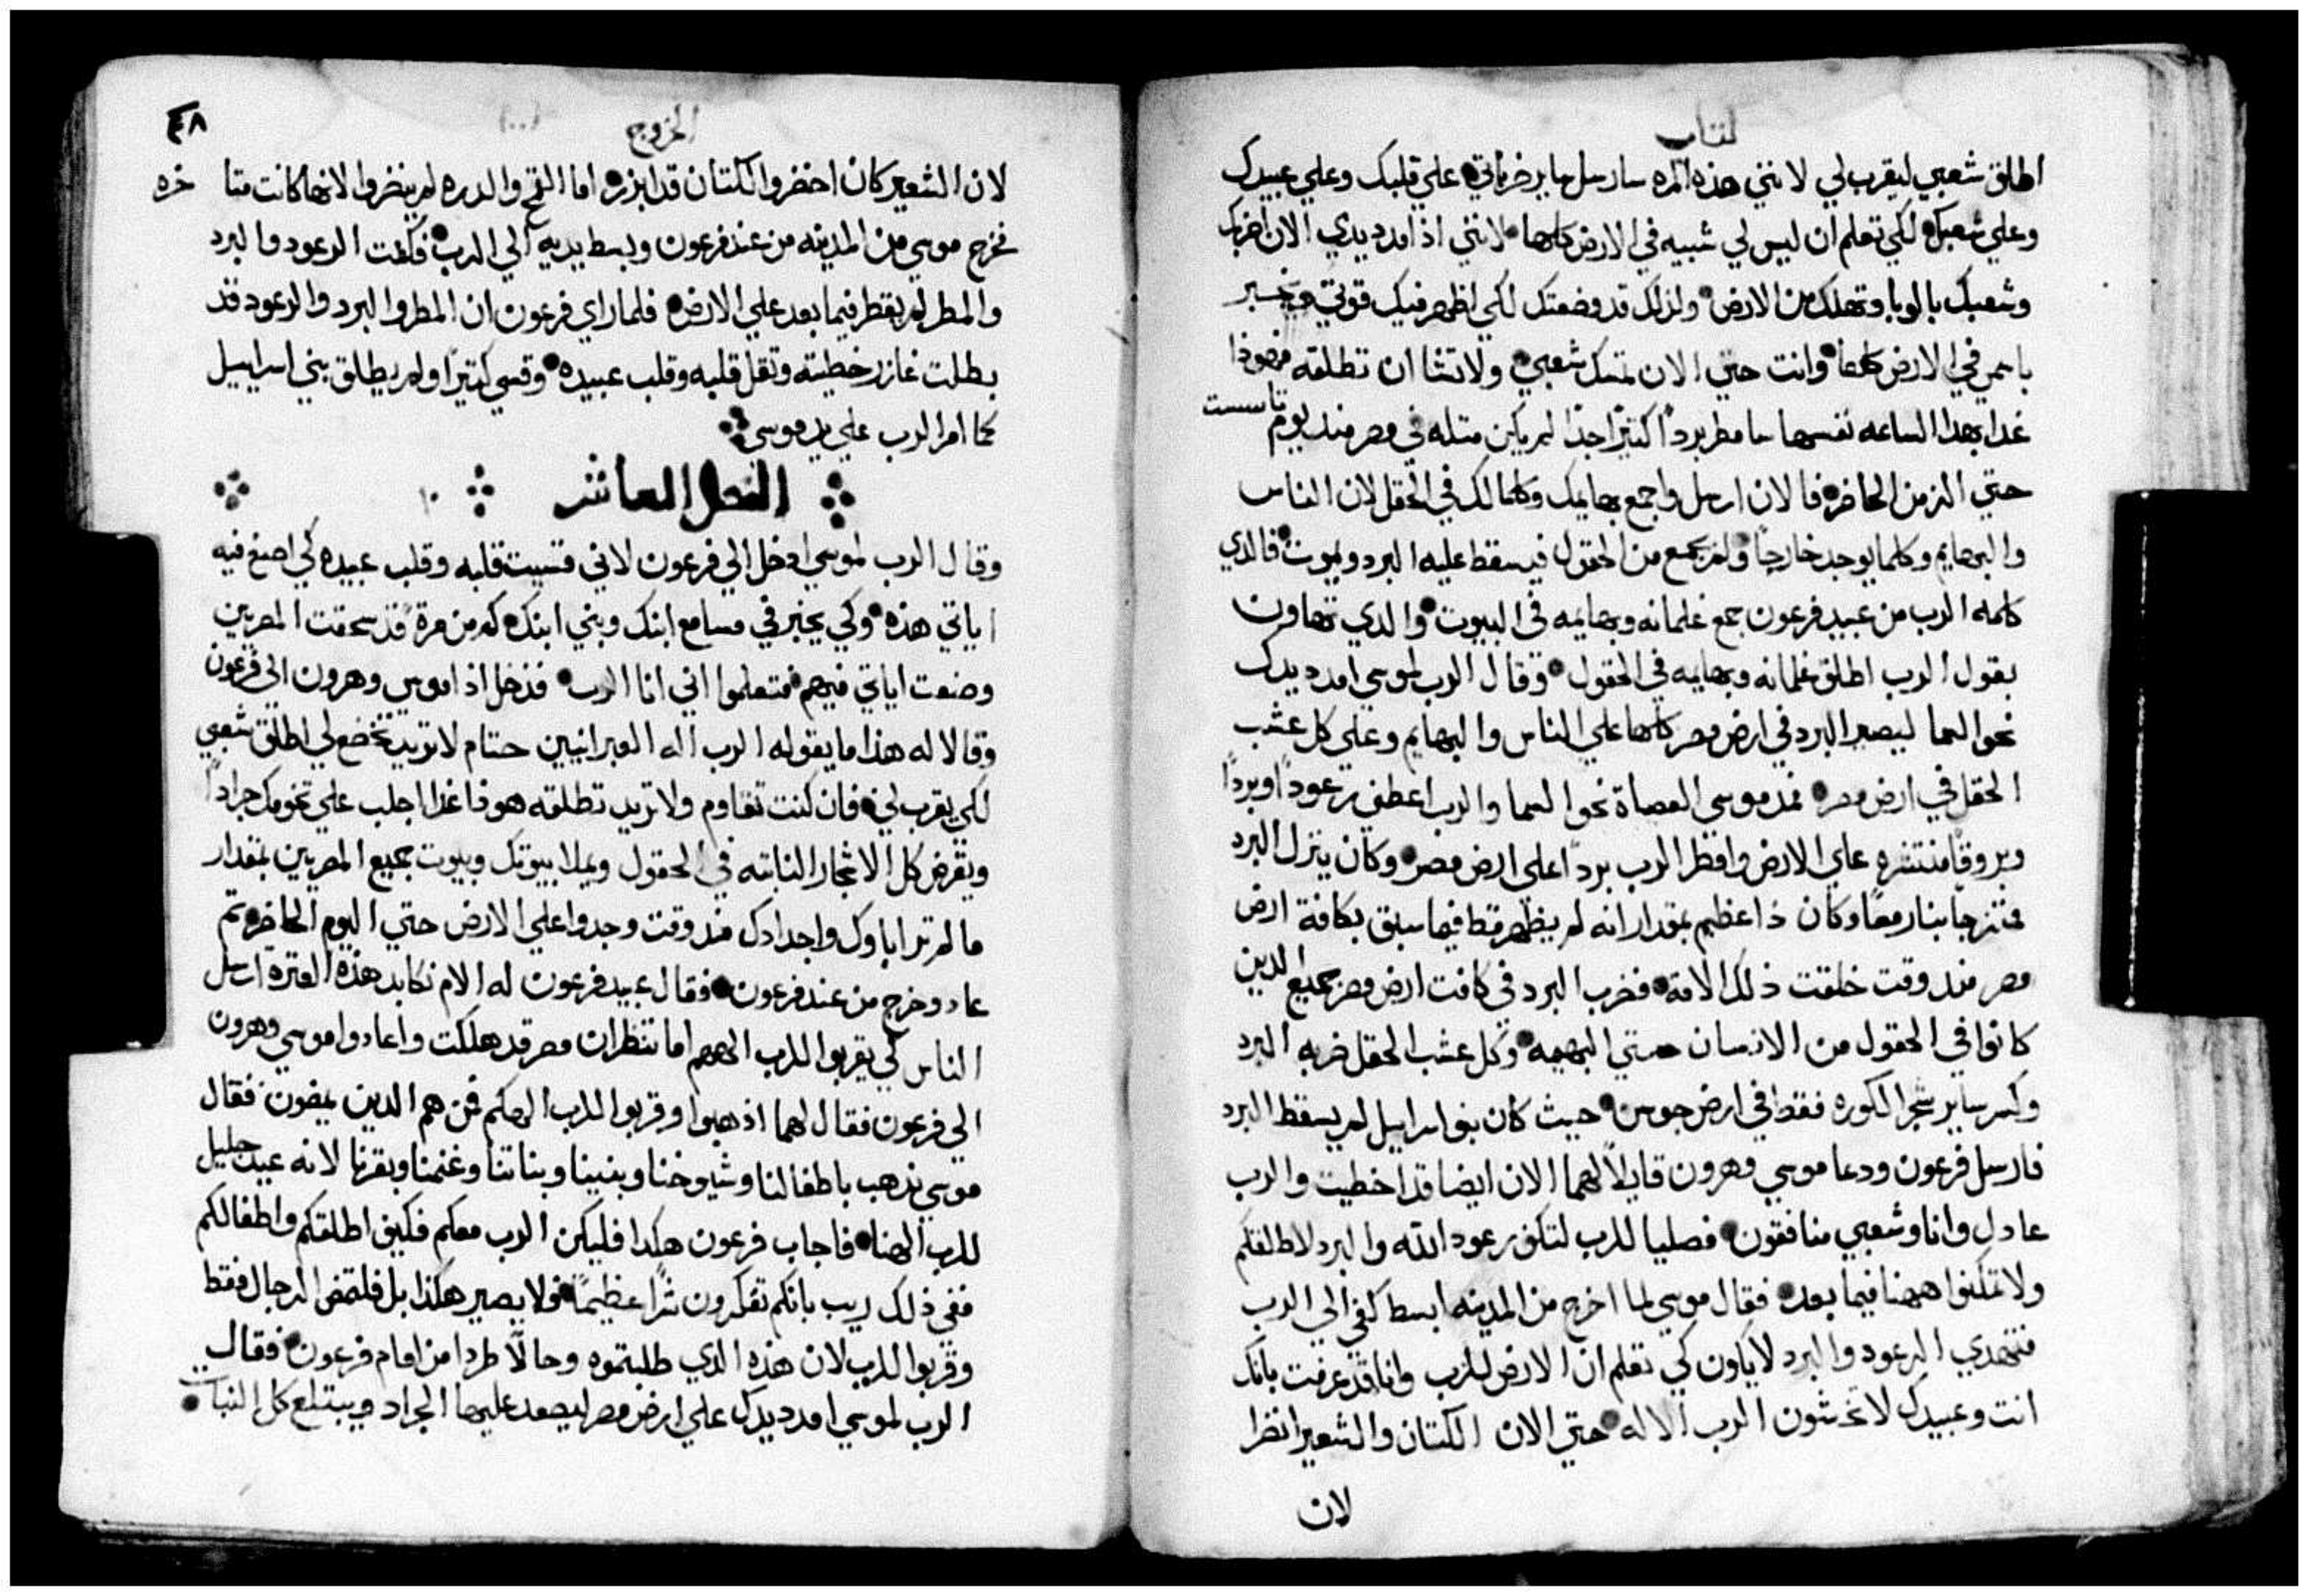 كتاب
اطلق شعبي ليقرب لي لانني هذه المره سارسل ساير ضرباتي علي قلبك وعلي عبيدك
وعلي شعبك لكي تعلم ان ليس لي شبيه في الارض كلها لانني اذ امدد يدي الان اضربك
وشعبك بالوبا وتهلك من الارض ولذلك قد وضعتك لكي اظهر فيك قوتي ويخبر
باسمي في الارض كلها وانت حتي الان تمسك شعبي ولا تشا ان تطلقه فهوذا
غدا بهذا الساعه نفسها سامطر بردًا كثيرًا جدًا لم يكن مثله في مصر منذ يوم تاسست
حتي الزمن الحاضر فالان ارسل واجمع بهايمك وكلما لك في الحقل لان الناس
والبهايم وكلما يوجد خارجًا ولم يجمع من الحقول فيسقط عليه البرد ويموت فالذي
كلمه الرب من عبيد فرعون جمع غلمانه وبهايمه في البيوت والذي تهاون
بقول الرب اطلق غلمانه وبهايمه في الحقول وقال الرب لموسي امدد يدك
نحو السما ليصير البرد في ارض مصر كلها علي الناس والبهايم وعلي كل عشب
الحقل في ارض مصر فمد موسي العصاة نحو السما والرب اعطي رعودًا وبردًا
وبروقًا منتشره علي الارض وامطر الرب بردًا علي ارض مصر وكان ينزل البرد
ممتزجا بنار معًا وكان ذا عظيم بمقدار انه لم يظهر قط فيما سبق بكافة ارض
مصر منذ وقت خلقت ذلك الامة فضرب البرد في كافت ارض مصر جميع الدين
كانوا في الحقول من الانسان حتي البهيمه وكل عشب الحقل ضربه البرد
وكسر ساير شجر الكوره فقط في ارض جوسن حيث كان بنو اسراييل لم يسقط البرد
فارسل فرعون ودعا موسي وهرون قايلاً لهما الان ايضا قد اخطيت والرب
عادل وانا وشعبي منافقون فصليا للرب لتكف رعود الله والبرد لاطلقكم
ولا تمكثوا ههنا فيما بعد فقال موسي لما اخرج من المدينه ابسط كفي الي الرب
فتهدي الرعود والبرد لا يكون كي تعلم ان الارض للرب وانا قد عرفت بانك
انت وعبيدك لا تخشون الرب الاله حتي الان الكتان والشعير انضرا
لان
الخروج
٤٨
لان الشعير كان اخضر والكتان قد ابزر اما القمح والدره لم ينضروا لانها كانت متاخره
فخرج موسي من المدينه من عند فرعون وبسط يديه الي الرب فكفت الرعود والبرد
والمطر لم يقطر فيما بعد علي الارض فلما راي فرعون ان المطر والبرد والرعود قد
بطلت غازر خطيته وثقل قلبه وقلب عبيده وقسي كثيرًا ولم يطلق بني اسراييل
كما امر الرب علي يد موسي
الفصل العاشر ١٠
وقال الرب لموسي ادخل الي فرعون لاني قسيت قلبه وقلب عبيده كي اصنع فيه
اياتي هذه وكي يخبر في مسامع ابنك وبني ابنك كم من مرة قد سحقت المصريين
وصنعت اياتي فيهم فتعلموا اني انا الرب فدخل اذا موسي وهرون الي فرعون
وقالا له هذا ما يقوله الرب اله العبرانيين حتام لا تريد تخضع لي اطلق شعبي
لكي يقرب لي فان كنت تقاوم ولا تريد تطلقه هوذا غدا اجلب علي تخومك جرادًا
ويقرض كل الاشجار النابته في الحقول ويملا بيوتك وبيوت جميع المصريين بمقدار
ما لم تر اباوك واجدادك منذ وقت وجدوا علي الارض حتي اليوم الحاضر ثم
عاد وخرج من عند فرعون فقال عبيد فرعون له الام نكابد هذه العثره ارسل
الناس كي يقربوا للرب الههم اما تنظر ان مصر قد هلكت واعادوا موسي وهرون
الي فرعون فقال لهما اذهبوا وقربوا للرب الهكم فمن هم الدين يمضون فقال
موسي نذهب باطفالنا وشيوخنا وبنينا وبناتنا وغنمنا وبقرنا لانه عيد جليل
للرب الهنا فاجاب فرعون هكدا فليكن الرب معكم فكيف اطلقكم واطفالكم
ففي ذلك ريب بانكم تفكرون شرًا عظيمًا ولا يصير هكذا بل فلتمض الرجال فقط
وقربوا للرب لان هذه الدي طلبتموه وحالاً طردا من امام فرعون فقال
الرب لموسي امدد يدك علي ارض مصر ليصعد عليها الجراد ويبتلع كل النبات